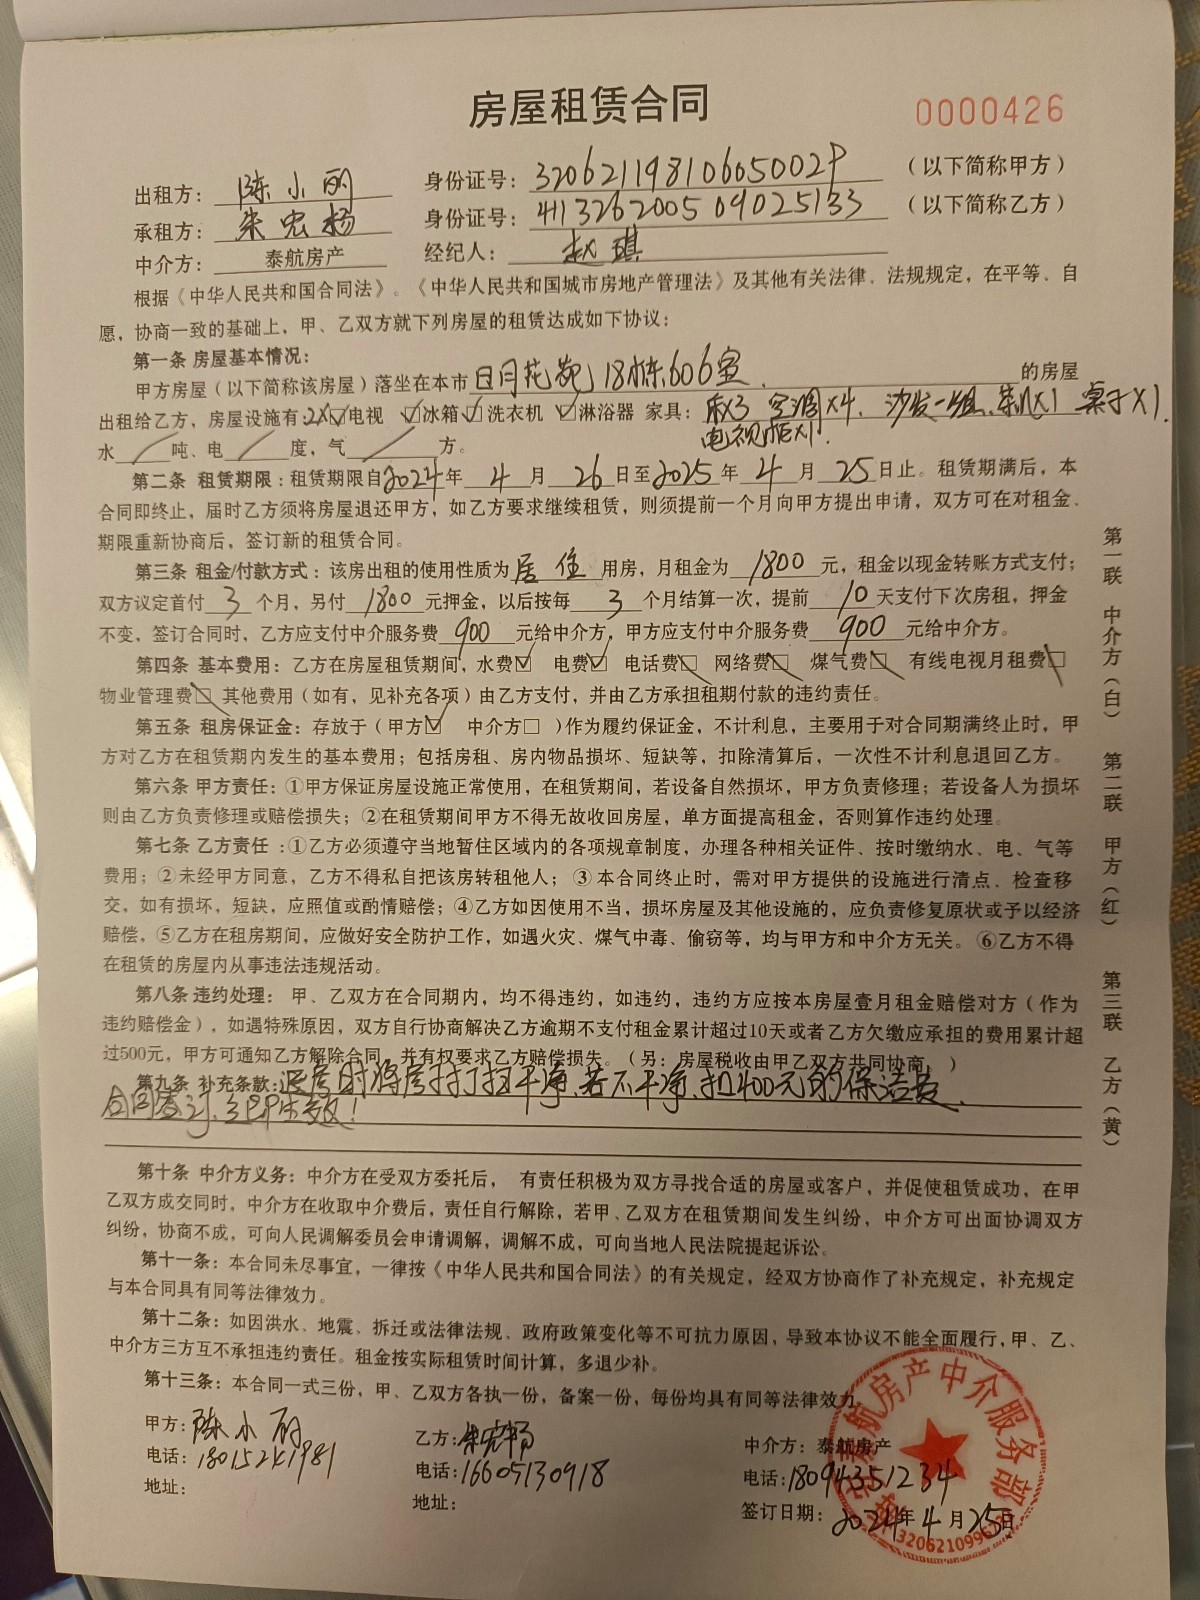 房屋租赁合同
0000426
出租方: 陈小丽 身份证号: 32062119810605002P (以下简称甲方)
承租方: 朱宏杨 身份证号: 411326200509025133 (以下简称乙方)
中介方: 泰航房产 经纪人: 赵琪
根据《中华人民共和国合同法》、《中华人民共和国城市房地产管理法》及其他有关法律、法规规定,在平等、自
愿,协商一致的基础上,甲、乙双方就下列房屋的租赁达成如下协议:
第一条 房屋基本情况:
甲方房屋(以下简称该房屋)落坐在本市日月花苑18栋606室. 的房屋
出租给乙方,房屋设施有:2×☑电视 ☑冰箱☑洗衣机 ☑淋浴器 家具: 床×3 空调×4、沙发一组、茶几×1 桌子×1.
电视柜×1.
水 / 吨、电 / 度,气 / 方。
第二条 租赁期限:租赁期限自2024年 4 月 26 日至2025年 4 月 25日止。租赁期满后,本
合同即终止,届时乙方须将房屋退还甲方,如乙方要求继续租赁,则须提前一个月向甲方提出申请,双方可在对租金、
期限重新协商后,签订新的租赁合同。
第三条 租金/付款方式:该房出租的使用性质为居住用房,月租金为 1800 元,租金以现金转账方式支付;
双方议定首付 3 个月,另付 1800 元押金,以后按每 3 个月结算一次,提前 10 天支付下次房租,押金
不变,签订合同时,乙方应支付中介服务费 900 元给中介方,甲方应支付中介服务费 900 元给中介方。
第四条 基本费用:乙方在房屋租赁期间,水费☑ 电费☑ 电话费□ 网络费□ 煤气费□ 有线电视月租费□
物业管理费□ 其他费用(如有,见补充各项)由乙方支付,并由乙方承担租期付款的违约责任。
第五条 租房保证金:存放于(甲方☑ 中介方□ )作为履约保证金,不计利息,主要用于对合同期满终止时,甲
方对乙方在租赁期内发生的基本费用;包括房租、房内物品损坏、短缺等,扣除清算后,一次性不计利息退回乙方。
第六条 甲方责任:①甲方保证房屋设施正常使用,在租赁期间,若设备自然损坏,甲方负责修理;若设备人为损坏
则由乙方负责修理或赔偿损失;②在租赁期间甲方不得无故收回房屋,单方面提高租金,否则算作违约处理。
第七条 乙方责任:①乙方必须遵守当地暂住区域内的各项规章制度,办理各种相关证件、按时缴纳水、电、气等
费用;②未经甲方同意,乙方不得私自把该房转租他人;③本合同终止时,需对甲方提供的设施进行清点、检查移
交,如有损坏,短缺,应照值或酌情赔偿;④乙方如因使用不当,损坏房屋及其他设施的,应负责修复原状或予以经济
赔偿,⑤乙方在租房期间,应做好安全防护工作,如遇火灾、煤气中毒、偷窃等,均与甲方和中介方无关。⑥乙方不得
在租赁的房屋内从事违法违规活动。
第八条 违约处理: 甲、乙双方在合同期内,均不得违约,如违约,违约方应按本房屋壹月租金赔偿对方(作为
违约赔偿金),如遇特殊原因,双方自行协商解决乙方逾期不支付租金累计超过10天或者乙方欠缴应承担的费用累计超
过500元,甲方可通知乙方解除合同,并有权要求乙方赔偿损失。(另:房屋税收由甲乙双方共同协商。)
第九条 补充条款:退房时将房打扫干净,若不干净,扣400元的保洁费.
合同签订,立即生效!
第十条 中介方义务:中介方在受双方委托后, 有责任积极为双方寻找合适的房屋或客户,并促使租赁成功,在甲
乙双方成交同时,中介方在收取中介费后,责任自行解除,若甲、乙双方在租赁期间发生纠纷,中介方可出面协调双方
纠纷,协商不成,可向人民调解委员会申请调解,调解不成,可向当地人民法院提起诉讼。
第十一条:本合同未尽事宜,一律按《中华人民共和国合同法》的有关规定,经双方协商作了补充规定,补充规定
与本合同具有同等法律效力。
第十二条:如因洪水、地震、拆迁或法律法规、政府政策变化等不可抗力原因,导致本协议不能全面履行,甲、乙、
中介方三方互不承担违约责任。租金按实际租赁时间计算,多退少补。
第十三条:本合同一式三份,甲、乙双方各执一份,备案一份,每份均具有同等法律效力
甲方:陈小丽 乙方:朱宏杨 中介方:泰航房产
电话: 电话:16605130918 电话:18094351234
地址: 地址: 签订日期:2024年4月25日
第一联 中介方(白) 第二联 甲方(红) 第三联 乙方(黄)
航房产中介服务部